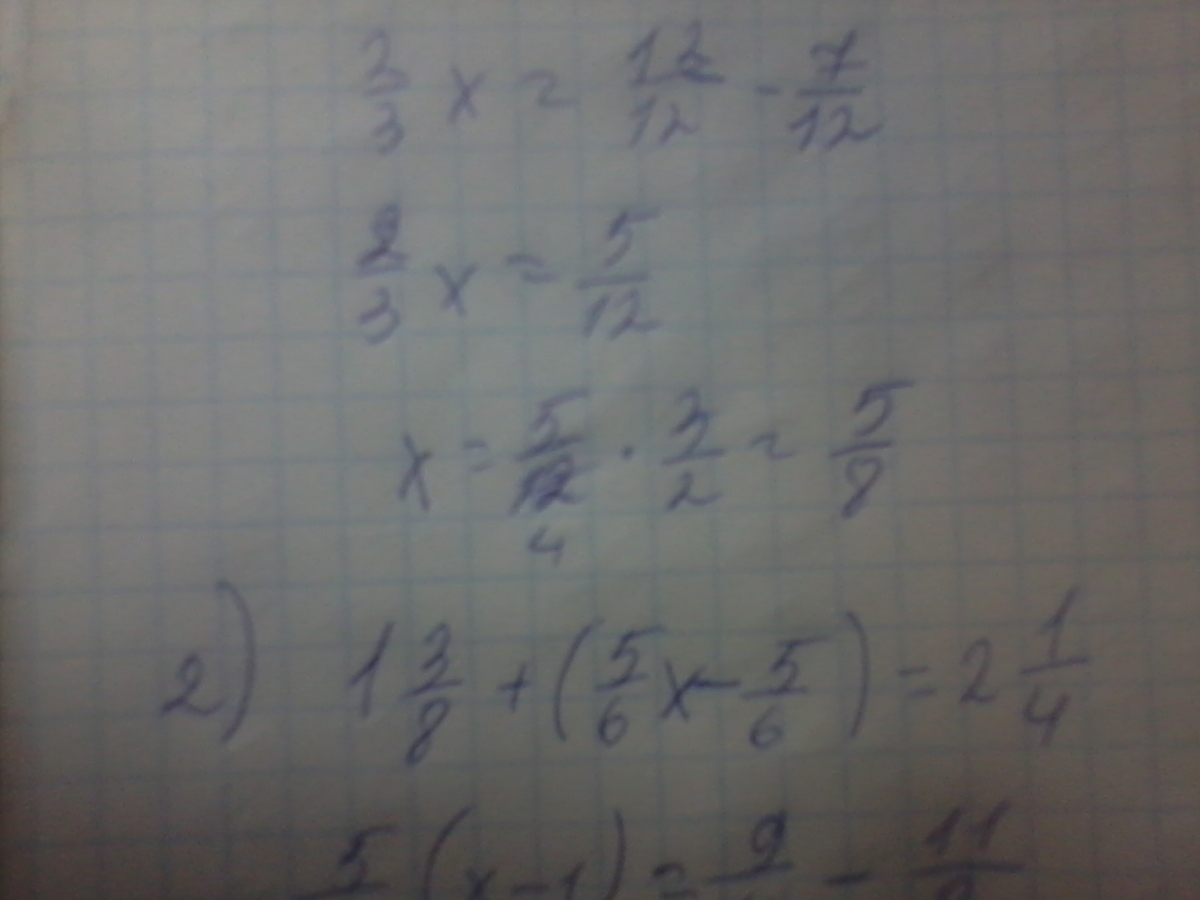 2/3 x = 12/12 - 7/12
2/3 x = 5/12
x = 5/12 · 3/2 = 5/8
4
2) 1 3/8 + (5/6 x - 5/6) = 2 1/4
5 (x-1) = 9 - 11